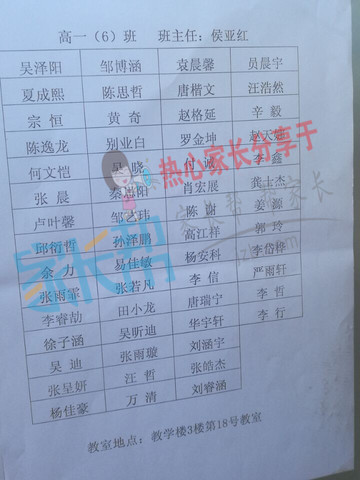 高一（6）班 班主任：侯亚红
吴泽阳 邹博涵 袁晨馨 员晨宇
夏成熙 陈思哲 唐楷文 汪浩然
宗恒 黄奇 赵格延 辛毅
陈逸龙 别业白 罗金坤 赵天意
何文恺 吴晓 付诚 李鑫
张晨 秦思阳 肖宏展 龚士杰
卢叶馨 邹艺玮 陈谢 姜源
邱衍哲 孙泽鹏 高江祥 郭玲
余力 易佳敏 杨安科 李岱桦
张雨霏 张若凡 李信 严雨轩
李睿劼 田小龙 唐瑞宁 李哲
徐子涵 吴昕迪 华宇轩 李行
吴迪 张雨璇 刘涵宇
张呈妍 汪哲 张皓杰
杨佳豪 万清 刘睿涵
教室地点：教学楼3楼第18号教室
热心家长分享于
家长帮